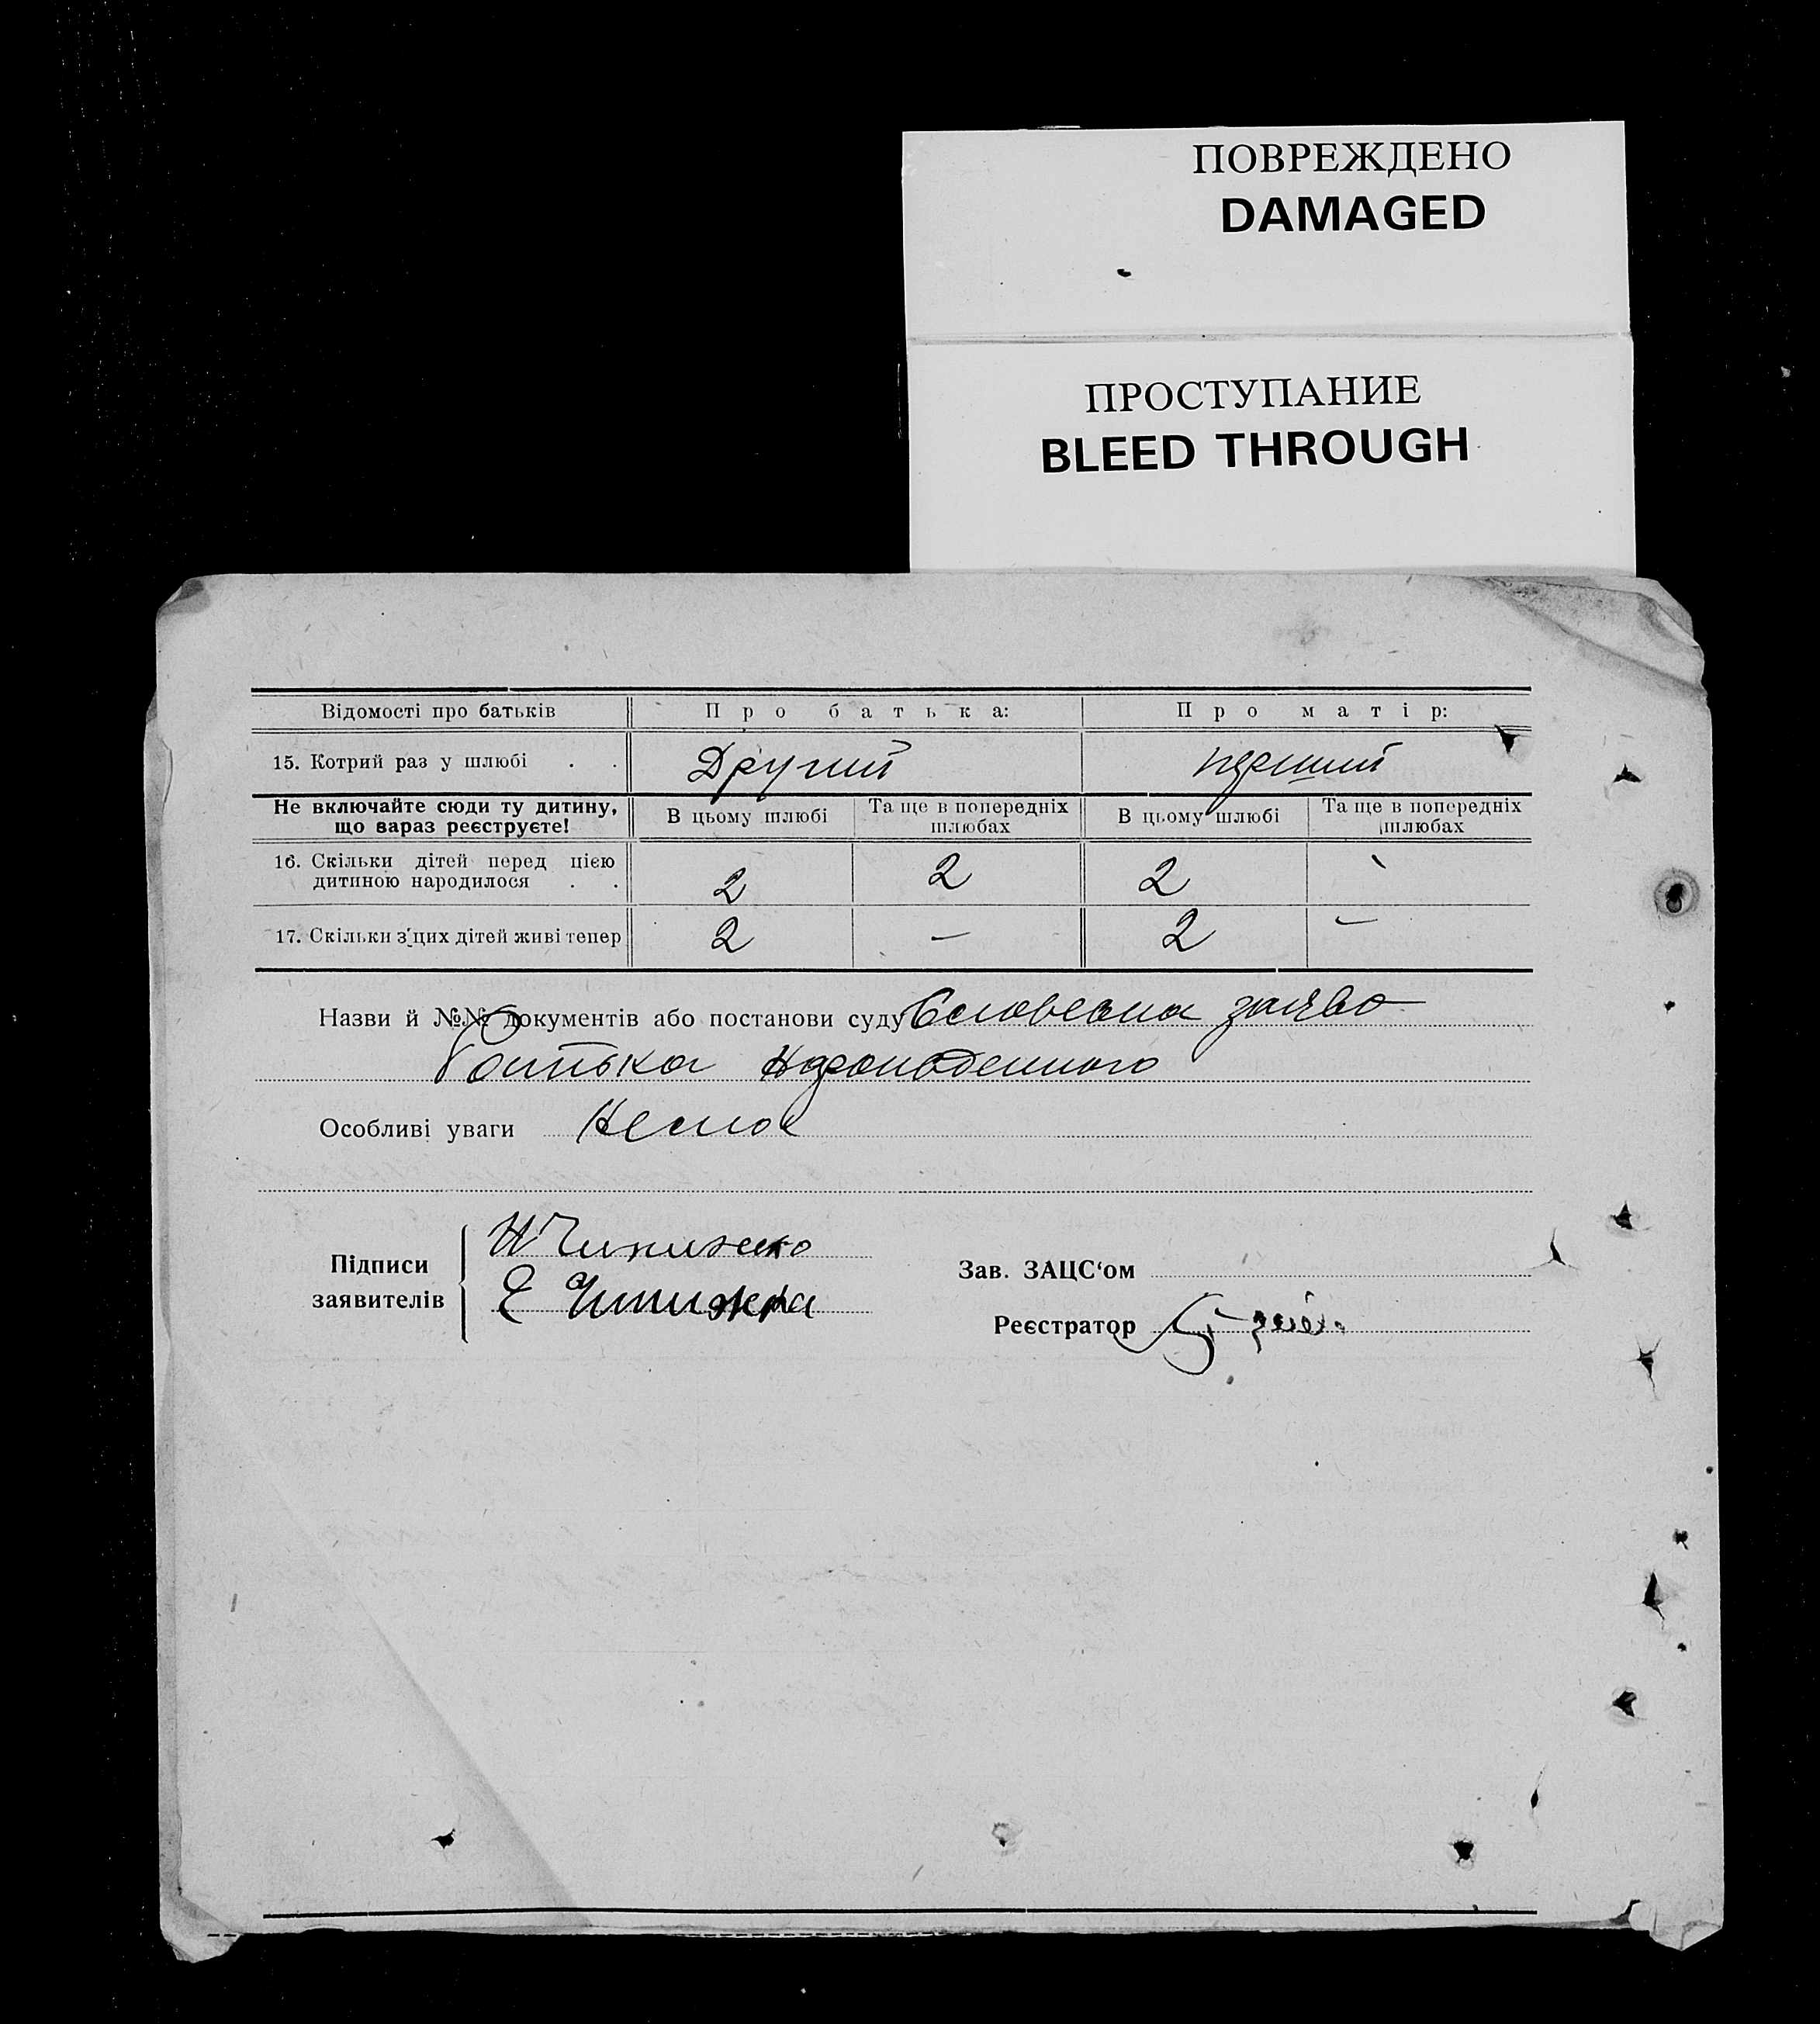 ПОВРЕЖДЕНО
DAMAGED
ПРОСТУПАНИЕ
BLEED THROUGH
Відомості про батьків Про батька: Про матір:
15. Котрий раз у шлюбі . . Другий перший
Не включайте сюди ту дитину, що вараз реєструєте! В цьому шлюбі Та ще в попередніх шлюбах В цьому шлюбі Та ще в попередніх шлюбах
16. Скільки дітей перед цією дитиною народилося . . 2 2 2 -
17. Скільки з цих дітей живі тепер 2 — 2 —
Назви й №№ документів або постанови суду Словесна заява
батька
Особливі уваги Немає
Підписи заявителів
Зав. ЗАЦС‘ом
Реєстратор